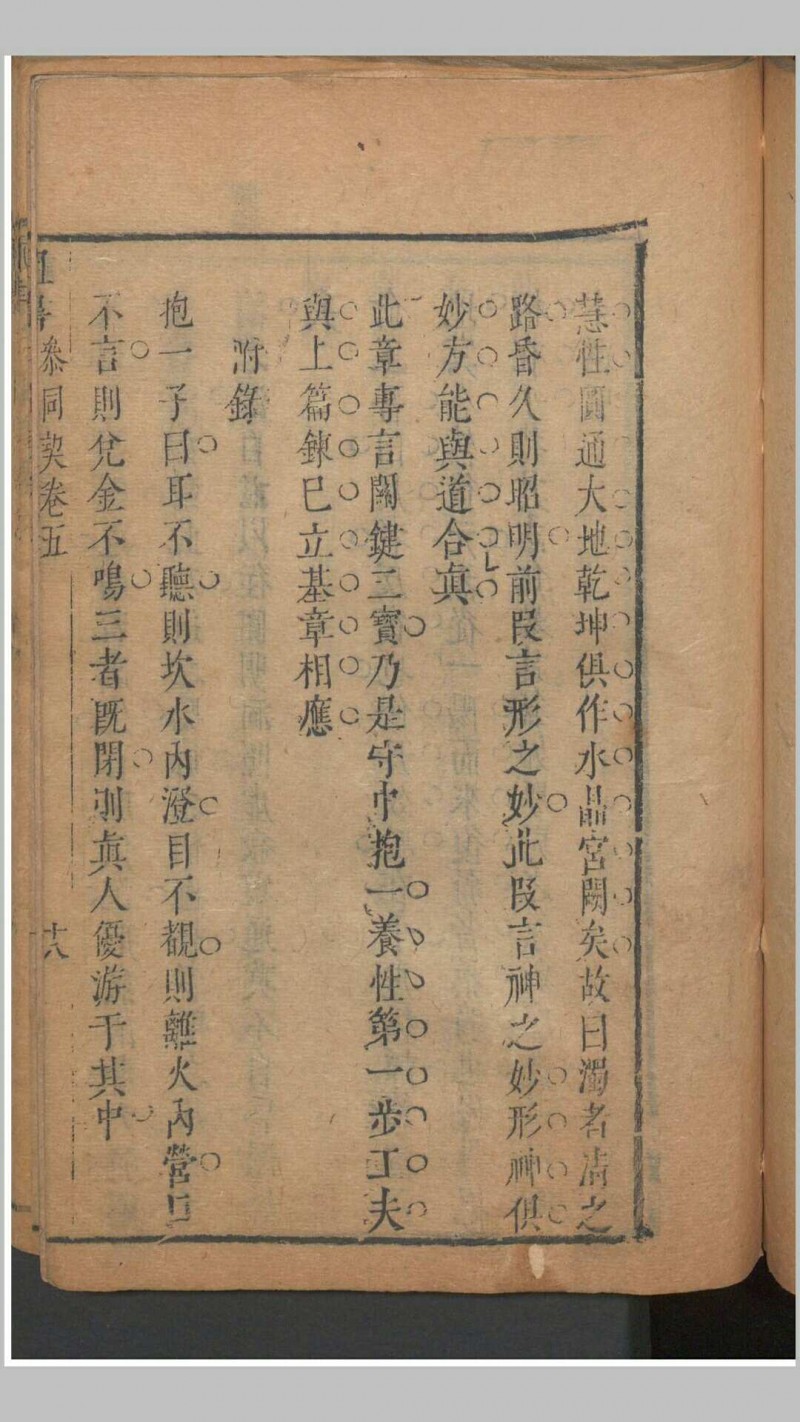 慧性圓通大地乾坤俱作水晶宮闕矣故曰濁者清之
路昏久則昭明前段言形之妙此段言神之妙形神俱
妙方能與道合真
此章專言關鍵三寶乃是守中抱一養性第一步工夫
與上篇鍊已立基章相應
附錄
抱一子曰耳不聽則坎水內澄目不覩則離火內營口
不言則兌金不鳴三者既閉則真人優游于其中
參同契卷五
十八